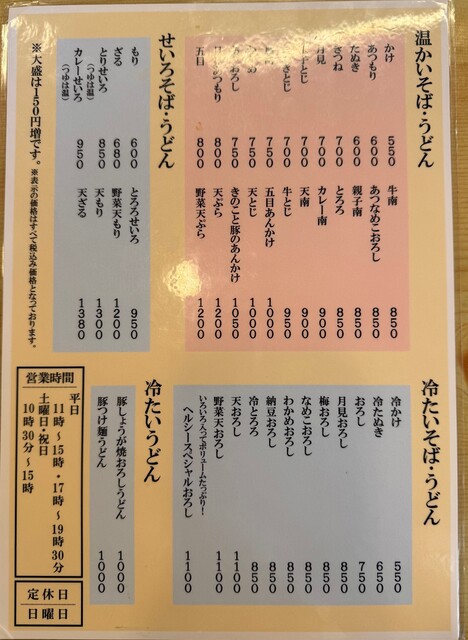 温かいそば・うどん
かけ 550
あつもり 600
たぬき 600
きつね 700
月見 700
子とじ 700
きとじ 700
750
750
おろし 750
つもり 800
五目 800
牛南 850
あつなめこおろし 850
親子南 850
とろろ 850
カレー南 900
天南 900
牛とじ 950
五目あんかけ 1000
天とじ 1000
きのこと豚のあんかけ 1050
天ぷら 1200
野菜天ぷら 1200
せいろそば・うどん
もり 600
ざる 680
とりせいろ 850
(つゆは温)
カレーせいろ 950
(つゆは温)
とろろせいろ 950
野菜天もり 1200
天もり 1300
天ざる 1380
※大盛は150円増です。
※表示の価格はすべて税込み価格となっております。
冷たいそば・うどん
冷かけ 550
冷たぬき 650
おろし 750
月見おろし 850
梅おろし 850
なめこおろし 850
わかめおろし 850
納豆おろし 850
冷とろろ 850
天おろし 1100
野菜天おろし 1100
いろいろ入ってボリュームたっぷり!
ヘルシースペシャルおろし 1100
冷たいうどん
豚しょうが焼おろしうどん 1000
豚つけ麺うどん 1000
営業時間
平日
11時~15時・17時~19時30分
土曜日・祝日
10時30分~15時
定休日
日曜日